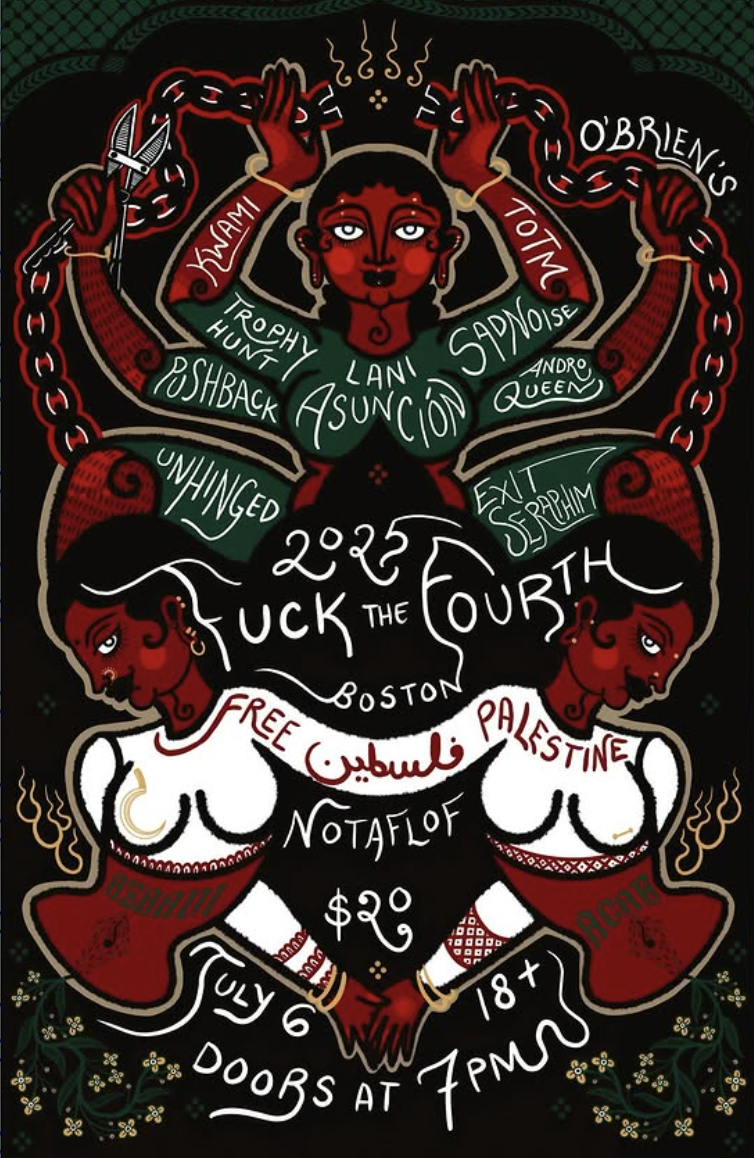 O'BRIEN'S
KWAMI
TOTM
TROPHY
HUNT
SADNOISE
PUSHBACK
LANI
ASUNCIÓN
ANDRO
QUEEN
UNHINGED
EXIT
SERAPHIM
2025
FUCK THE FOURTH
BOSTON
FREE فلسطين PALESTINE
NOTAFLOF
$20
ACAB
JULY 6
18+
DOORS AT 7PM